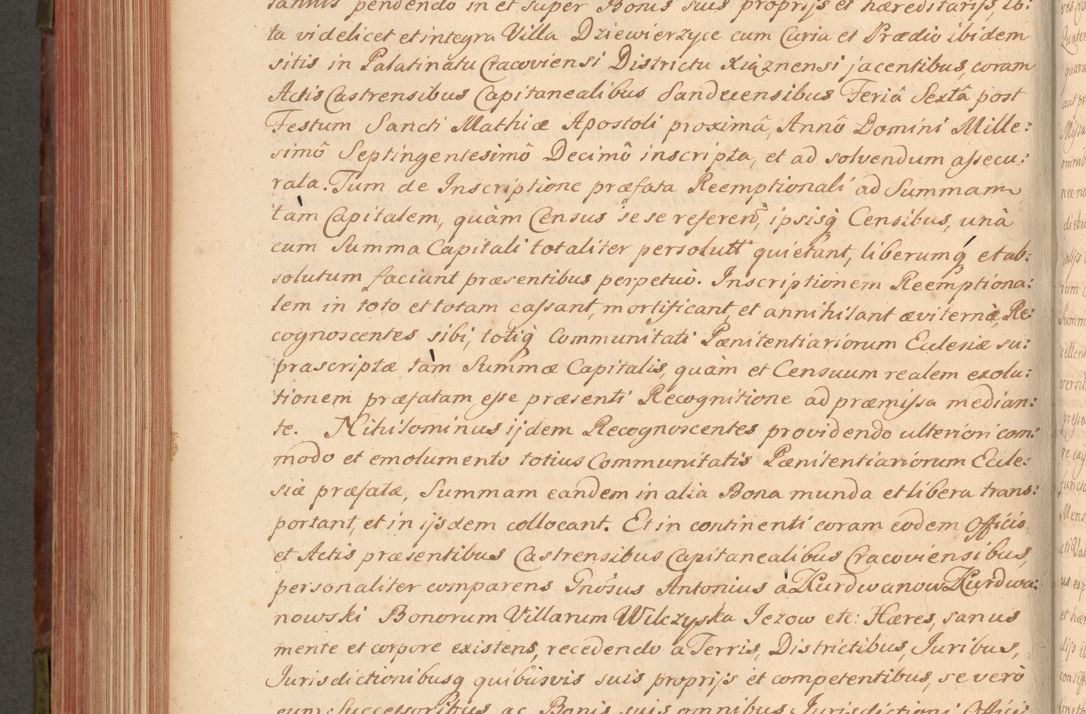 tannis pendendo in et super Bonis suis proprijs et hæreditarijs, to:
ta videlicet et integra Villa Dziewierzyce cum Curia et Prædio ibidem
sitis in Palatinatu Cracoviensi Districtu Xiąznensi jacentibus, coram
Actis Castrensibus Capitanealibus Sandecensibus Feriâ Sextâ post
Festum Sancti Mathiæ Apostoli proximâ, Annô Domini Mille:
simô Septingentesimô Decimô inscripta, et ad solvendum assecu:
rata. Tum de Inscriptione præfata Reemptionali ad Summam
tàm Capitalem, quàm Census se se referen̄, ipsisq Censibus, unà
cum Summa Capitali totaliter persolutt quietant, liberumq́ et ab:
solutum faciunt præsentibus perpetuò. Inscriptionem Reemptiona:
lem in toto et totam cassant, mortificant, et annihilant æviternè, Re:
cognoscentes sibi, totiq Communitati Pænitentiariorum Ecclesiæ su:
prascriptæ tàm Summæ Capitalis, quàm et Censuum realem exolu:
tionem præfatam esse præsenti Recognitione ad præmissa median:
te. Nihilominus ijdem Recognoscentes providendo ulteriori com:
modo et emolumento totius Communitatis Pænitentiariorum Eccle:
siæ præfatæ, Summam eandem in alia Bona munda et libera trans:
portant, et in ijsdem collocant. Et in continenti coram eodem Officio,
et Actis præsentibus Castrensibus Capitanealibus Cracoviensibus,
personaliter comparens Gnôsus Antonius à Kurdwanow Kurdwa:
nowski Bonorum Villarum Wilczyska Jezow etc: Hæres, sanus
mente et corpore existens, recedendo a Terris, Districtibus, Juribus,
Jurisdictionibusq quibusvis suis proprijs et competentibus, se verò
cum Successoribus ac Bonis suis omnibus Jurisdictioni Officij